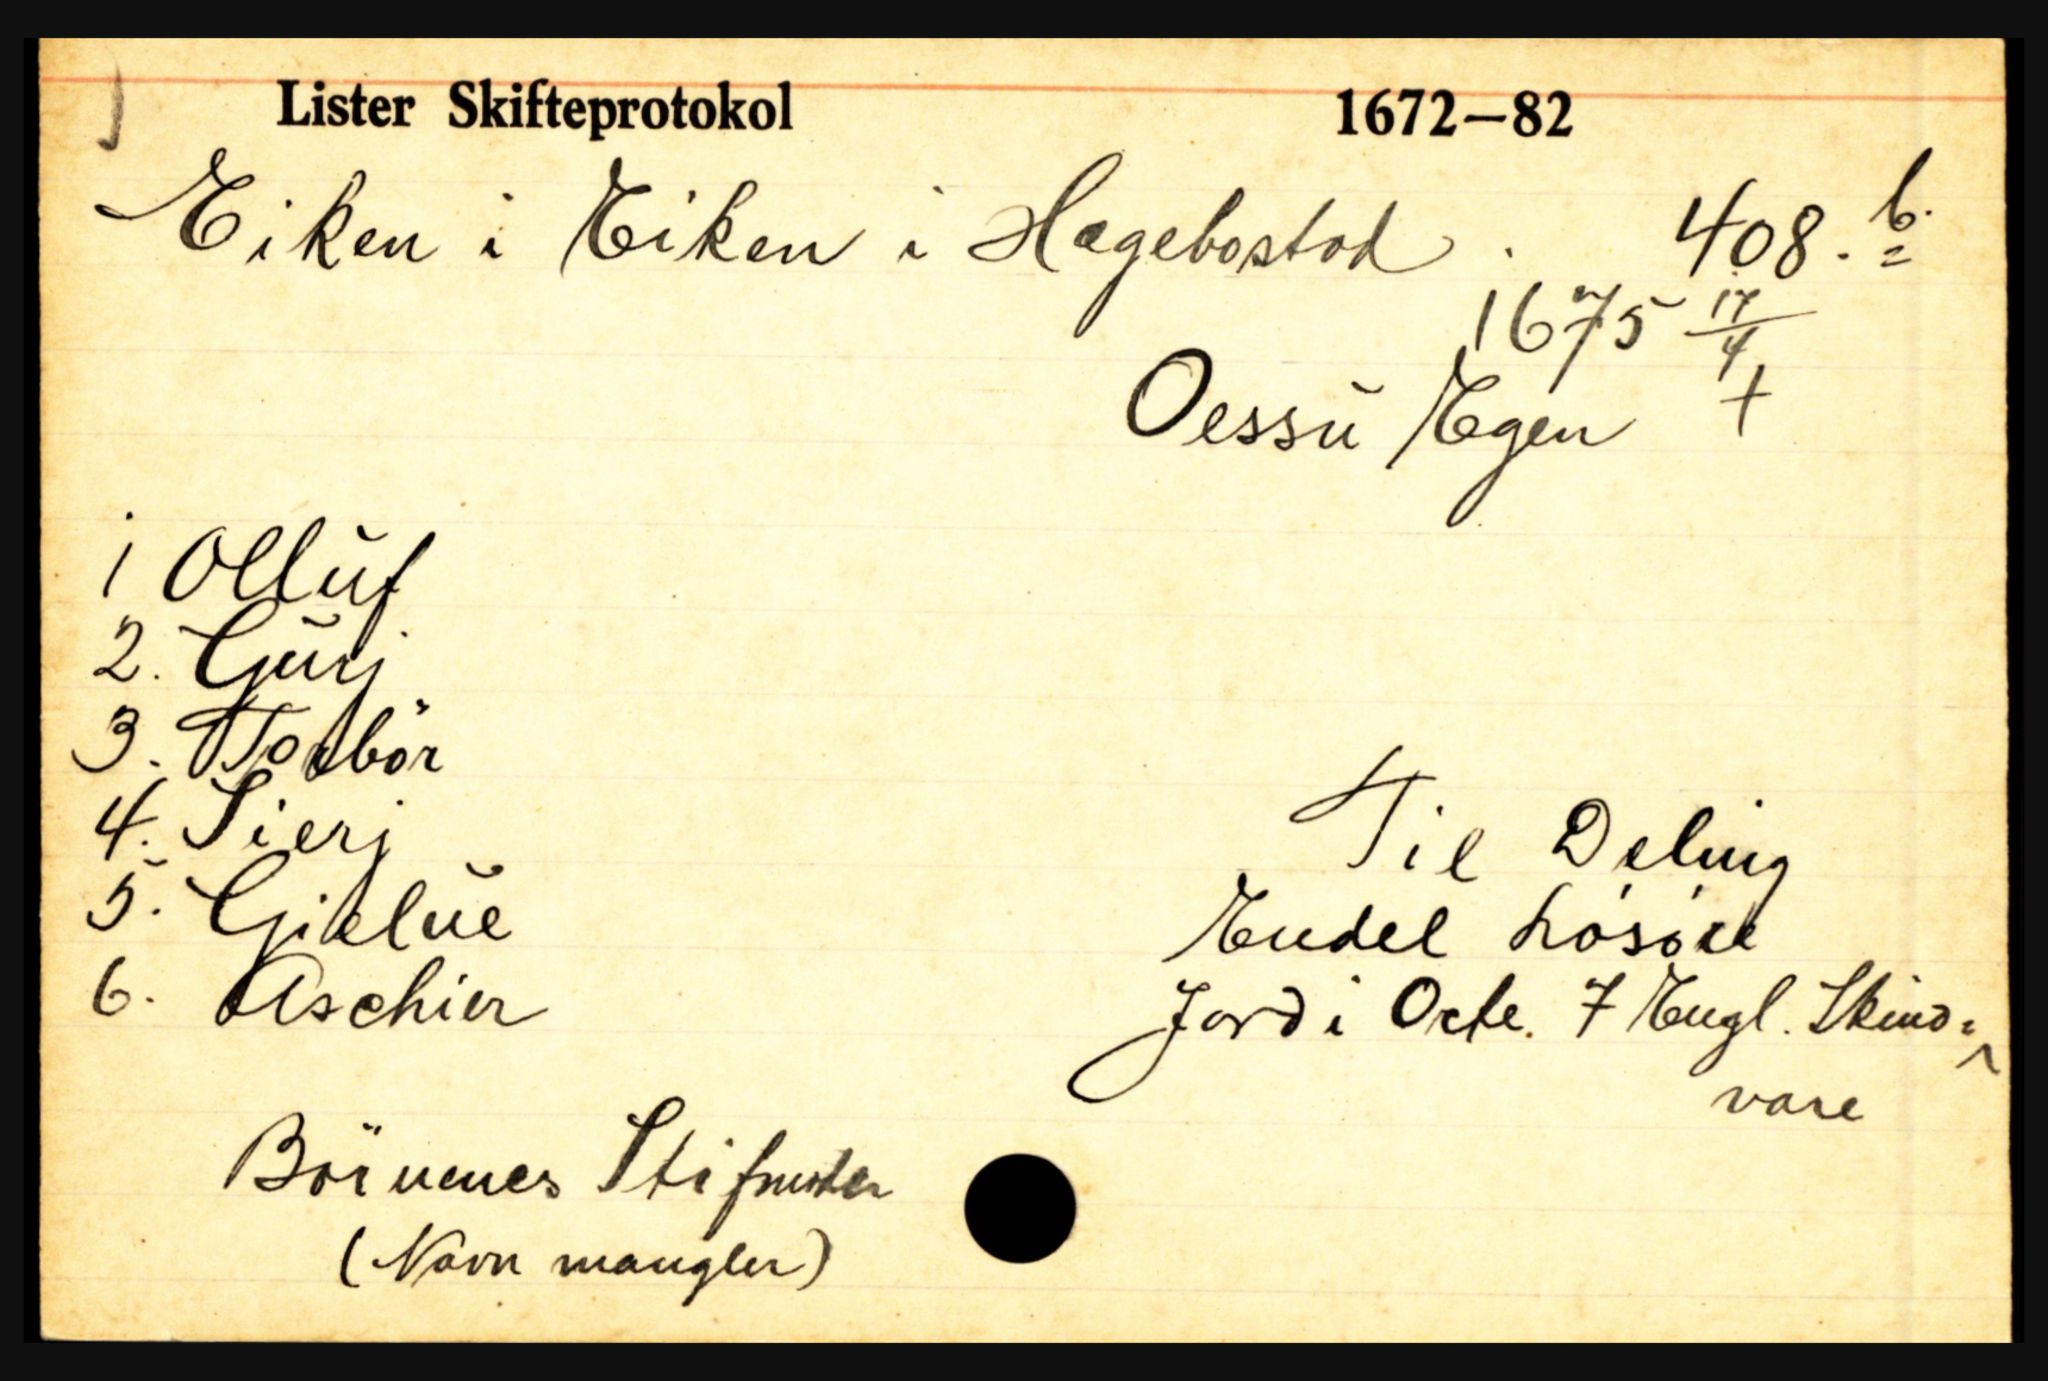 Lister Skifteprotokol 1672—82
Eiken i Eiken i Hægebostad. 408. b.
1675 17/4
Oessŭ Egen +
1 Ollŭf
2. Gŭrj
3. Torbör
4. Sierj
5. Gielŭe
6. Aschier
Til Deling
Endel Lösöre
Jord i Octe. 7 Engl. Skind=
vare
Börnenes Stifmoder
(Navn mangler)